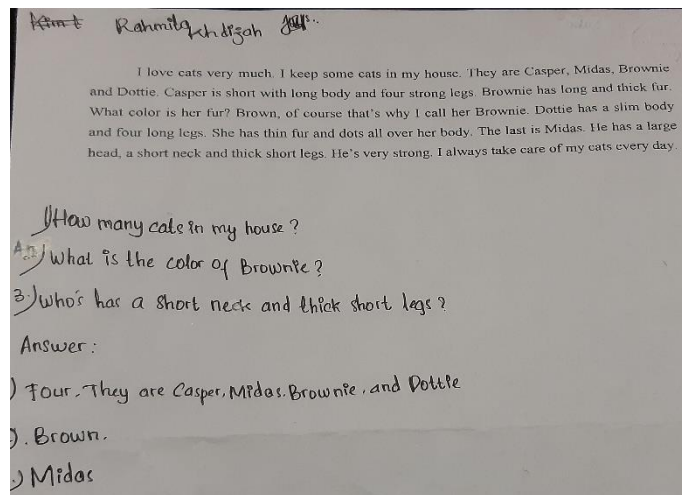 Rahmita khdizah
I love cats very much. I keep some cats in my house. They are Casper, Midas, Brownie
and Dottie. Casper is short with long body and four strong legs. Brownie has long and thick fur.
What color is her fur? Brown, of course that's why I call her Brownie. Dottie has a slim body
and four long legs. She has thin fur and dots all over her body. The last is Midas. He has a large
head, a short neck and thick short legs. He's very strong. I always take care of my cats every day.
1) How many cats in my house ?
2) what is the color of Brownie ?
3.) who's has a short neck and thick short legs ?
Answer :
) Four. They are Casper, Midas. Brownie, and Dottie
). Brown.
.) Midas